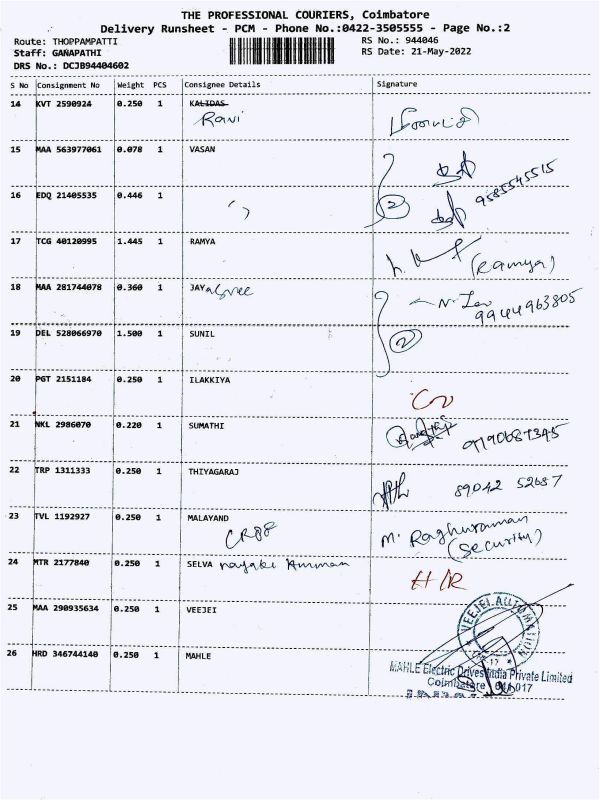 THE PROFESSIONAL COURIERS, Coimbatore
Delivery Runsheet - PCM - Phone No.:0422-3505555 - Page No.:2
Route: THOPPAMPATTI RS No.: 944046
Staff: GANAPATHI RS Date: 21-May-2022
DRS No.: DCJB94404602
S No Consignment No Weight PCS Consignee Details Signature
14 KVT 2590924 0.250 1 KALIDAS
Ravi
15 MAA 563977061 0.078 1 VASAN
16 EDQ 21405535 0.446 1
2 9585545515
17 TCG 40120995 1.445 1 RAMYA
(Ramya)
18 MAA 281744078 0.360 1 JAYagree
9944963805
19 DEL 528066970 1.500 1 SUNIL
2
20 PGT 2151184 0.250 1 ILAKKIYA
21 NKL 2986070 0.220 1 SUMATHI
22 TRP 1311333 0.250 1 THIYAGARAJ
89042 52687
23 TVL 1192927 0.250 1 MALAYAND
M. Raghuramman
(Security)
24 MTR 2177840 0.250 1 SELVA nayaki Amman
25 MAA 290935634 0.250 1 VEEJEI
VEEJEI AUTOMATION
26 HRD 346744140 0.250 1 MAHLE
MAHLE Electric Drives India Private Limited
Coimbatore 641 017